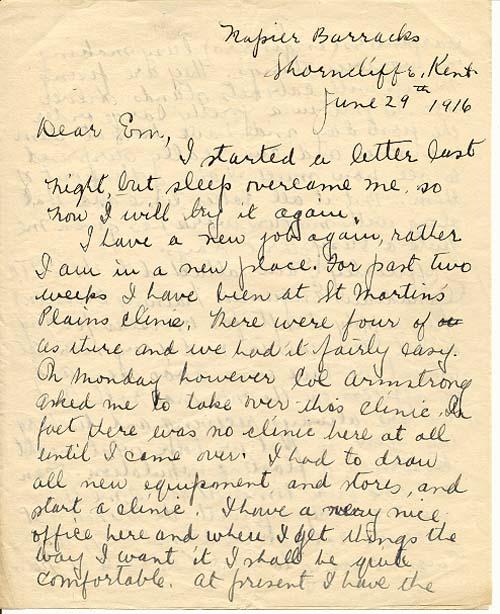 Napier Barracks
Shorncliffe, Kent
June 29th 1916
Dear Em,
I started a letter last
night, but sleep overcame me, so
now I will try it again.
I have a new job again, rather
I am in a new place. For past two
weeks I have been at St Martin's
Plains clinic. There were four of
us there and we had it fairly easy.
On Monday however Col Armstrong
asked me to take over this clinic. In
fact there was no clinic here at all
until I came over. I had to draw
all new equipment and stores, and
start a clinic. I have a very nice
office here and when I get things the
way I want it I shall be quite
comfortable. At present I have the